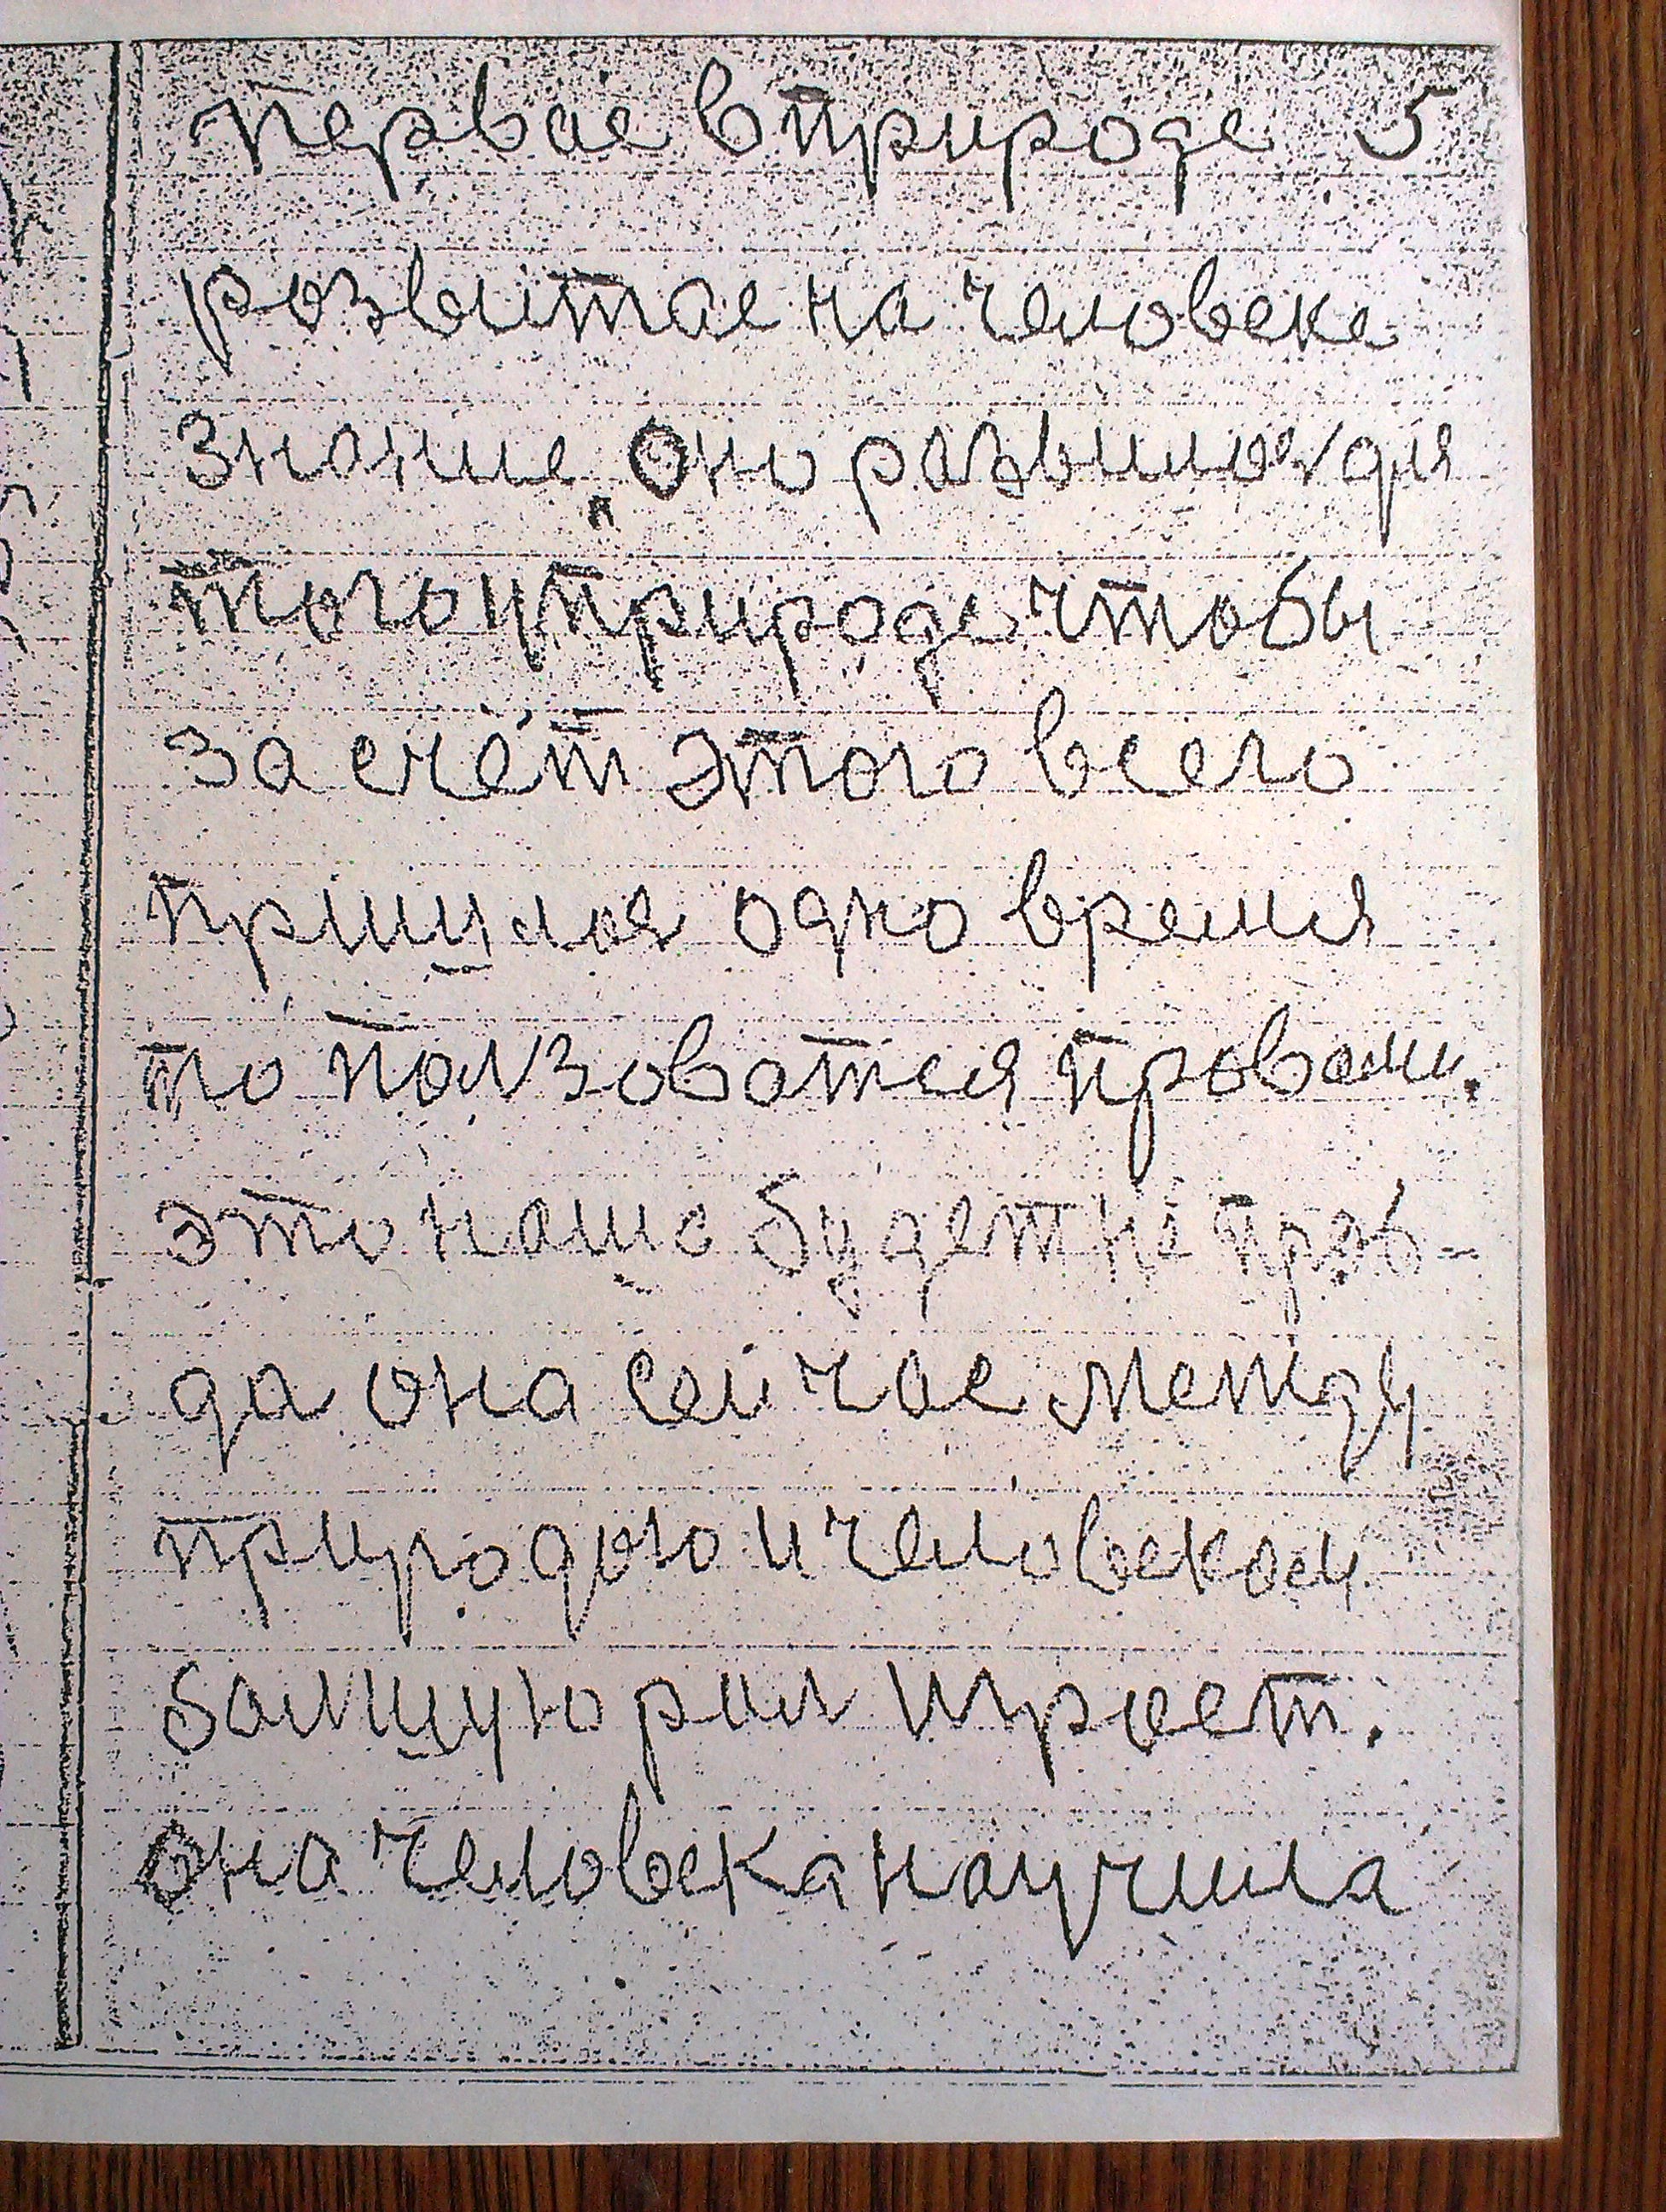 первае в природе 5
розвитае на человеке
знание. Оно развилось для
того у природе чтобы
за счёт этого всего
пришлося одно время
то ползоватся правами.
это наше будет не прав-
да она сейчас между
природою и человеком
балшую рил играет.
Она человека научила